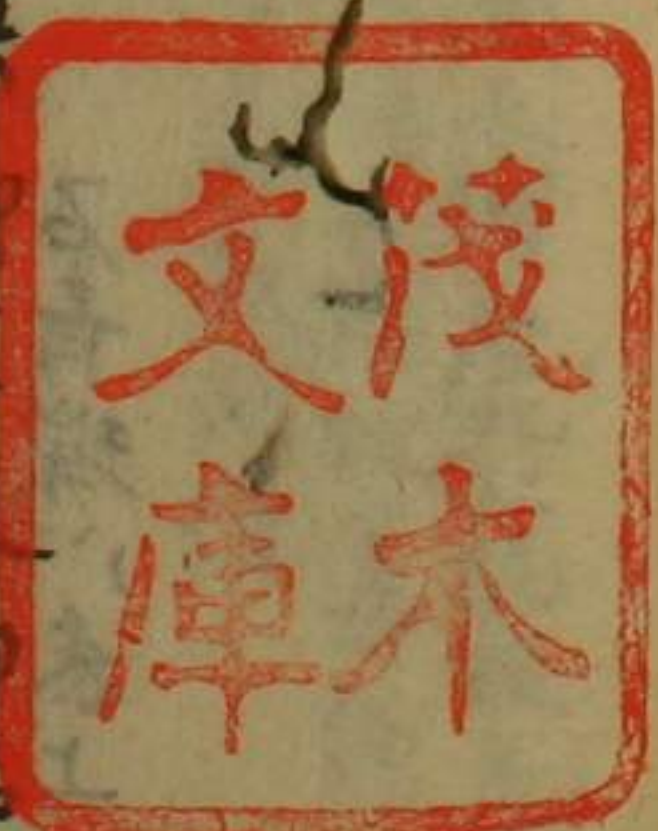 茂木
文庫